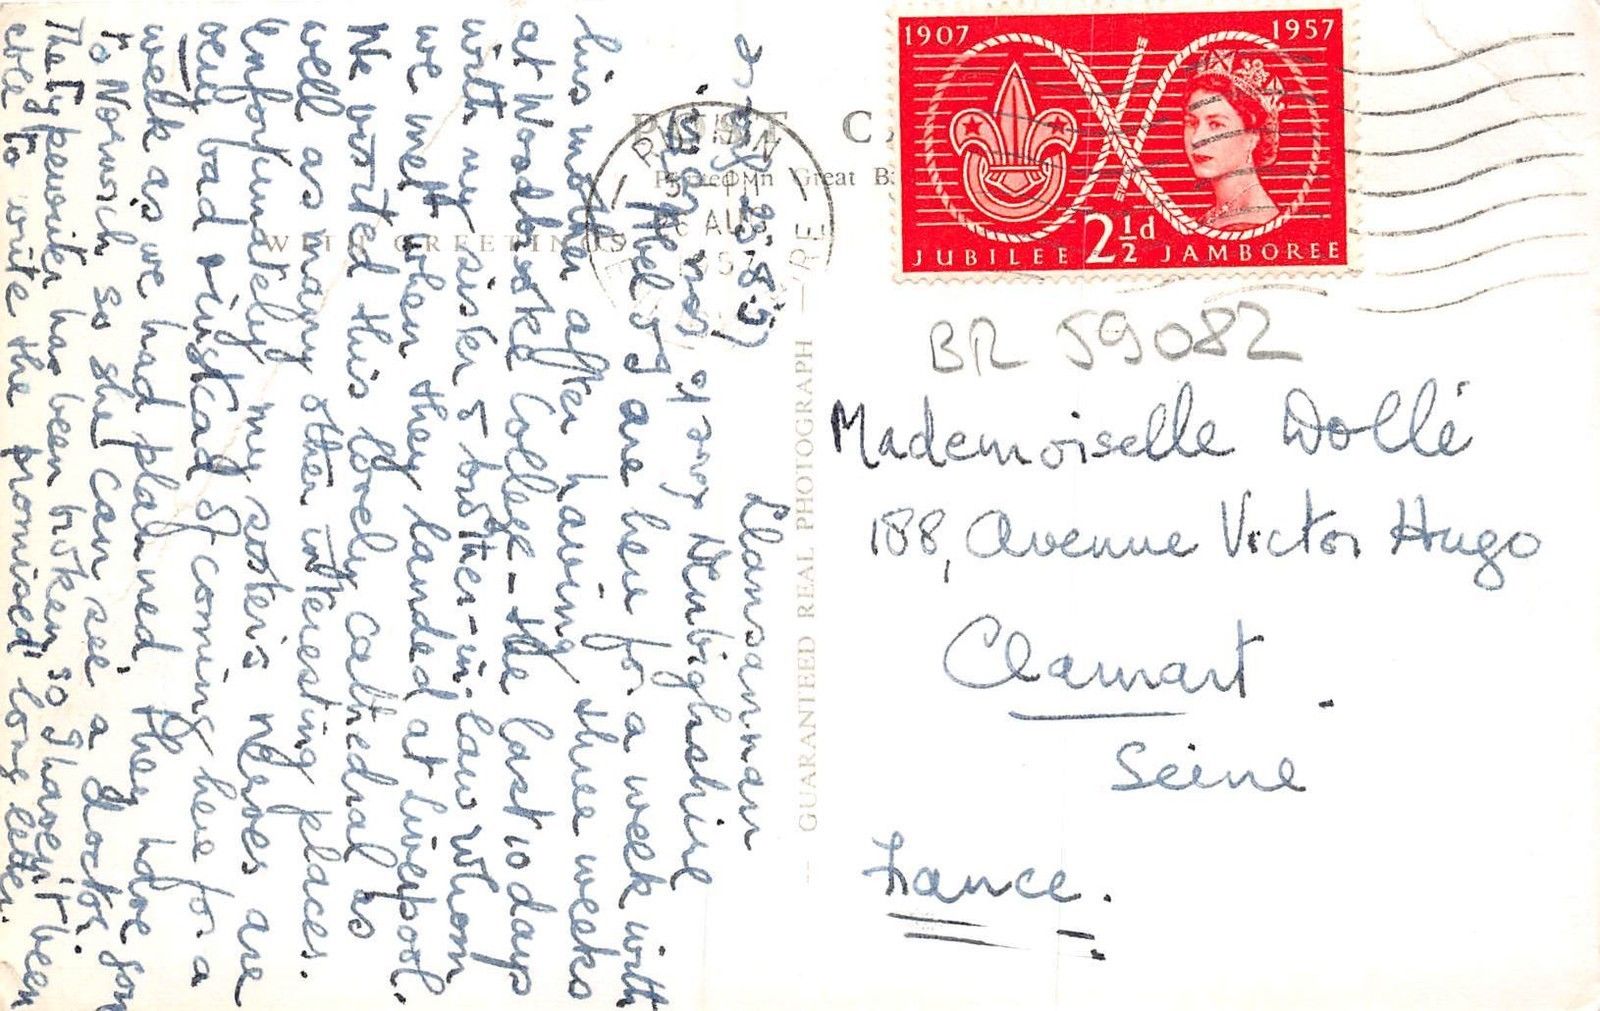 Llansannan
nr Denbighshire
25.8.57
Abel & I are here for a week with
his mother after having three weeks
at Woodbrooke College - the last 10 days
with my sister & brother-in-law whom
we met when they landed at Liverpool.
We visited this lovely cathedral as
well as many other interesting places.
Unfortunately my sister's nerves are
very bad & instead of coming here for a
week as we had planned, they have gone
to Norwich so she can see a doctor.
The typewriter has been broken so I haven't been
able to write the promised long letter.
POST C
Printed in Great B
WITH GREETINGS
GUARANTEED REAL PHOTOGRAPH
1907 1957
2½d
JUBILEE JAMBOREE
BR 59082
Mademoiselle Dollé
188, Avenue Victor Hugo
Clamart.
Seine
France.